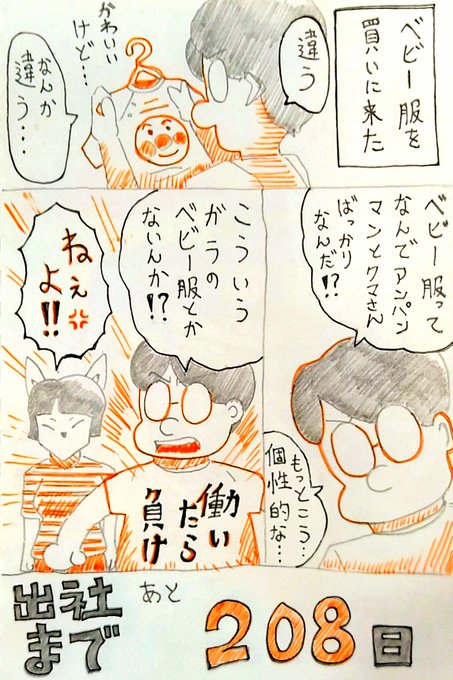 ベビー服を
買いに来た
違う
かわいい
けど…
なんか
違う…
ベビー服って
なんでアンパン
マンとクマさん
ばっかり
なんだ!?
もっとこう…
個性的な…
こういう
ガラの
ベビー服とか
ないんか!?
働い
たら
負け
ねぇ
よ!!
出社
まで
あと
208日